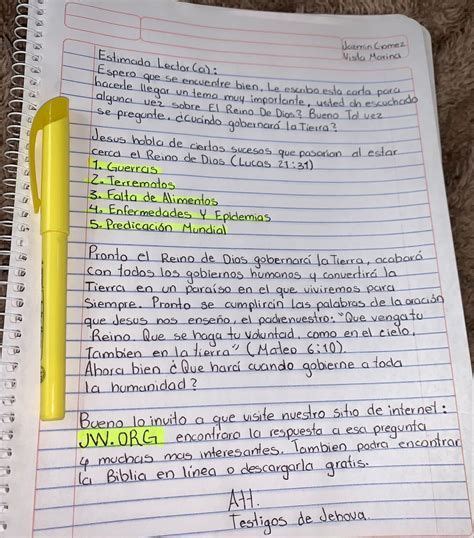 Jazmin Gomez
Vista Marina
Estimado Lector(a):
Espero que se encuentre bien, Le escribo esta carta para
hacerle llegar un tema muy importante, usted ah escuchado
alguna vez sobre El Reino De Dios? Bueno Tal vez
se pregunte. ¿Cuando gobernará la Tierra?
Jesus habla de ciertos sucesos que pasarian al estar
cerca el Reino de Dios (Lucas 21:31)
1. Guerras
2. Terremotos
3. Falta de Alimentos
4. Enfermedades Y Epidemias
5. Predicación Mundial
Pronto el Reino de Dios gobernará la Tierra, acabará
con todos los gobiernos humanos y convertirá la
Tierra en un paraiso en el que viviremos para
Siempre. Pronto se cumplirán las palabras de la oración
que Jesus nos enseño, el padrenuestro: "Que venga tu
Reino. Que se haga tu voluntad, como en el cielo,
Tambien en la tierra" (Mateo 6:10).
Ahora bien ¿Que hará cuando gobierne a toda
la humanidad?
Bueno lo invito a que visite nuestro sitio de internet:
JW.ORG encontrara la respuesta a esa pregunta
y muchas mas interesantes. Tambien podra encontrar
la Biblia en linea o descargarla gratis.
Att.
Testigos de Jehova.